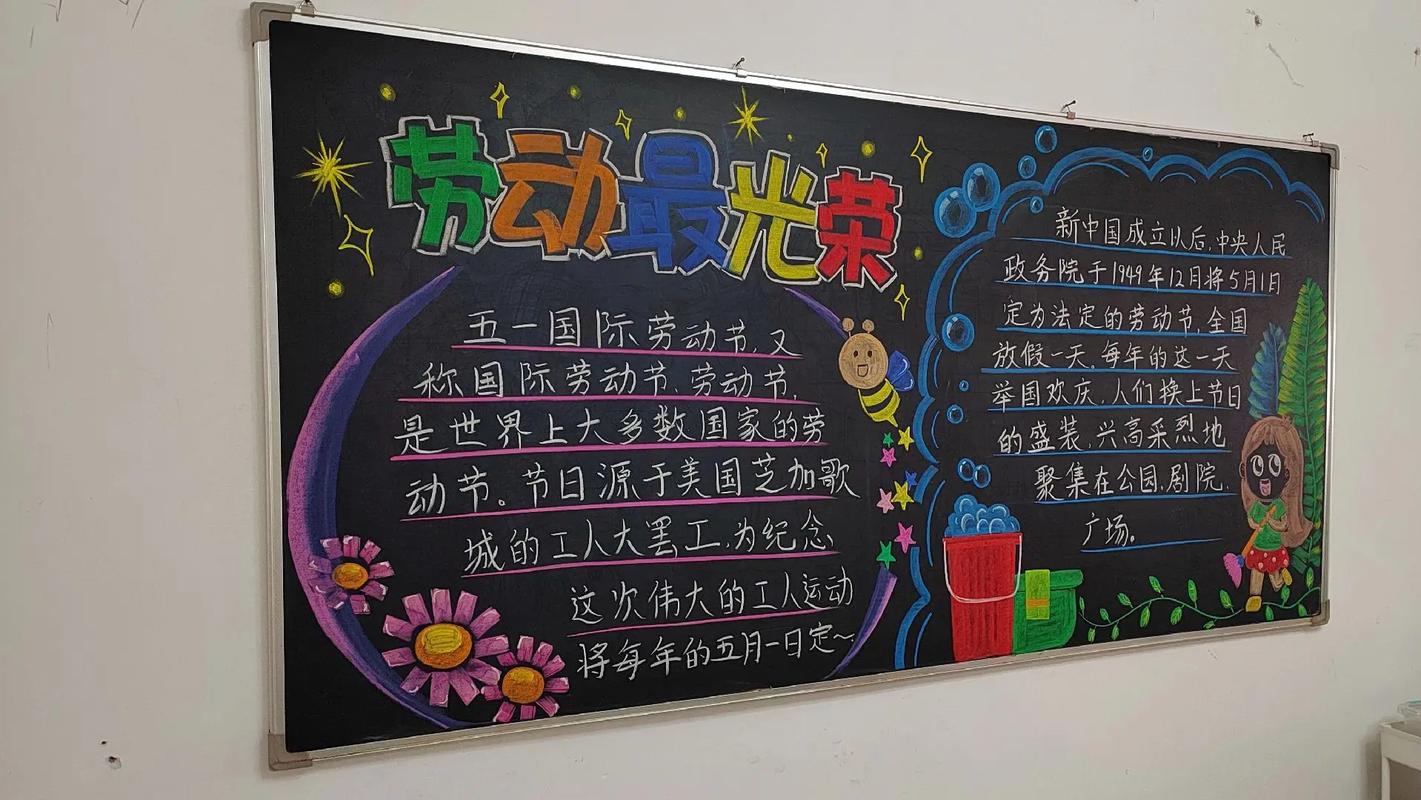 劳动最光荣
五一国际劳动节,又
称国际劳动节、劳动节,
是世界上大多数国家的劳
动节。节日源于美国芝加歌
城的工人大罢工,为纪念
这次伟大的工人运动
将每年的五月一日定~
新中国成立以后,中央人民
政务院于1949年12月将5月1日
定为法定的劳动节,全国
放假一天。每年的这一天
举国欢庆,人们换上节日
的盛装,兴高采烈地
聚集在公园、剧院、
广场。